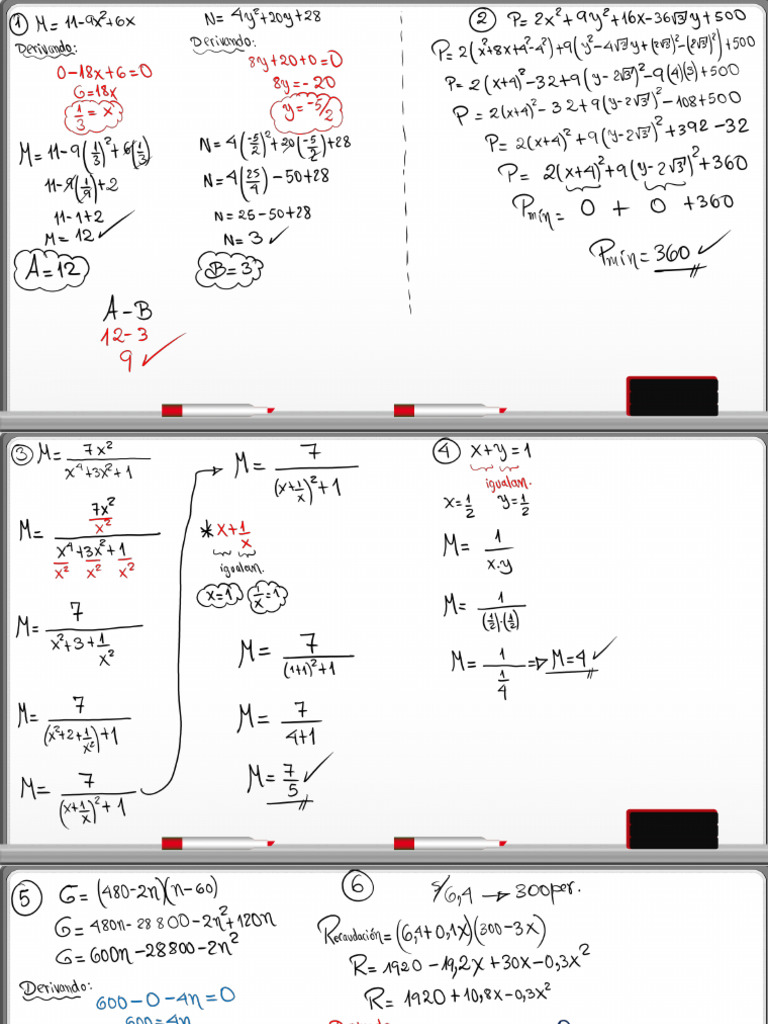 ① M = 11-9x²+6x
Derivando:
0-18x+6=0
6=18x
1/3 = x
M=11-9(1/3)²+6(1/3)
11-9(1/9)+2
11-1+2
M=12 ✓
A=12
N= 4y²+20y+28
Derivando:
8y+20+0=0
8y=-20
y=-5/2
N=4(-5/2)²+20(-5/2)+28
N=4(25/4)-50+28
N=25-50+28
N=3 ✓
B=3
A-B
12-3
9 ✓
② P=2x²+9y²+16x-36√3 y+500
P=2(x²+8x+4²-4²)+9(y²-4√3y+(2√3)²-(2√3)²)+500
P=2(x+4)²-32+9(y-2√3)²-9(4)(3)+500
P=2(x+4)²-32+9(y-2√3)²-108+500
P=2(x+4)²+9(y-2√3)²+392-32
P= 2(x+4)²+9(y-2√3)²+360
Pmín= 0 + 0 +360
Pmín=360 ✓
③ M= 7x²/(x⁴+3x²+1)
M= (7x²/x²)/(x⁴/x²+3x²/x²+1/x²)
M= 7/(x²+3+1/x²)
M= 7/((x²+2+1/x²)+1)
M= 7/((x+1/x)²+1)
M= 7/((x+1/x)²+1)
* x+1/x
igualan.
x=1 1/x=1
M= 7/((1+1)²+1)
M= 7/(4+1)
M= 7/5 ✓
④ x+y=1
igualan.
x=1/2 y=1/2
M= 1/(x.y)
M= 1/((1/2)·(1/2))
M= 1/(1/4) ⇒ M=4 ✓
⑤ G=(480-2n)(n-60)
G=480n-28800-2n²+120n
G=600n-28800-2n²
Derivando:
600-0-4n=0
600=4n
⑥ S/6,4 → 300per.
Recaudación=(6,4+0,1x)(300-3x)
R=1920-19,2x+30x-0,3x²
R=1920+10,8x-0,3x²